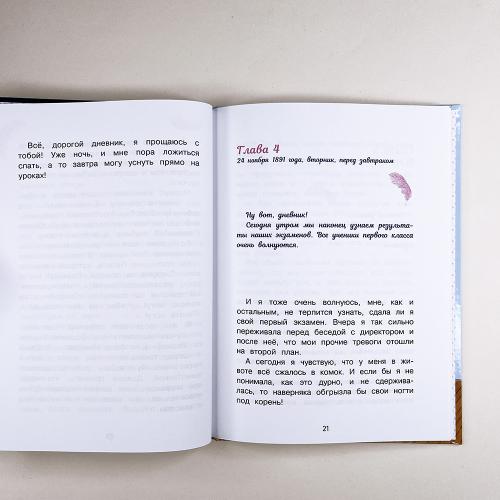 Всё, дорогой дневник, я прощаюсь с
тобой! Уже ночь, и мне пора ложиться
спать, а то завтра могу уснуть прямо на
уроках!
Глава 4
24 ноября 1891 года, вторник, перед завтраком
Ну вот, дневник!
Сегодня утром мы наконец узнаем результа-
ты наших экзаменов. Все ученики первого класса
очень волнуются.
И я тоже очень волнуюсь, мне, как и
остальным, не терпится узнать, сдала ли я
свой первый экзамен. Вчера я так сильно
переживала перед беседой с директором и
после неё, что мои прочие тревоги отошли
на второй план.
А сегодня я чувствую, что у меня в жи-
воте всё сжалось в комок. И если бы я не
понимала, как это дурно, и не сдержива-
лась, то наверняка обгрызла бы свои ногти
под корень!
21